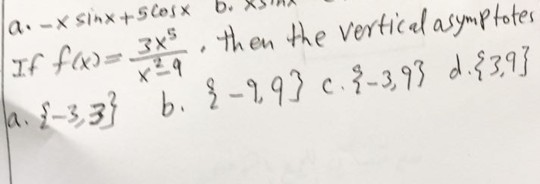 a. -x sinx + 5cosx b. xsinx
If f(x) = 3x⁵/(x²-9), then the vertical asymptotes
a. {-3,3} b. {-9,9} c. {-3,9} d. {3,9}